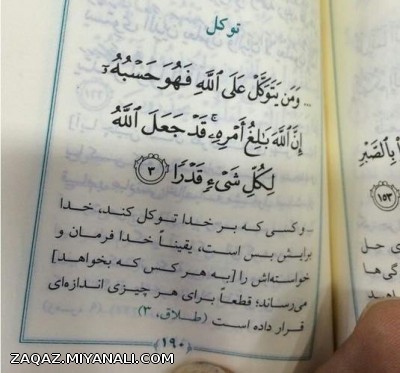 توکل
... وَمَن يَتَوَكَّلْ عَلَى ٱللَّهِ فَهُوَ حَسْبُهُۥٓ
إِنَّ ٱللَّهَ بَٰلِغُ أَمْرِهِۦ ۚ قَدْ جَعَلَ ٱللَّهُ
لِكُلِّ شَىْءٍ قَدْرًا ﴿٣﴾
ـ و کسی که بر خدا توکل کند، خدا
برایش بس است، یقیناً خدا فرمان و
خواسته‌اش را [به هر کس که بخواهد]
می‌رساند؛ قطعاً برای هر چیزی اندازه‌ای
قرار داده است (طلاق، ۳)
۱۹۰
بِٱلصَّبْرِ
﴿١٥٣﴾
ZAQAZ.MIYANALI.COM